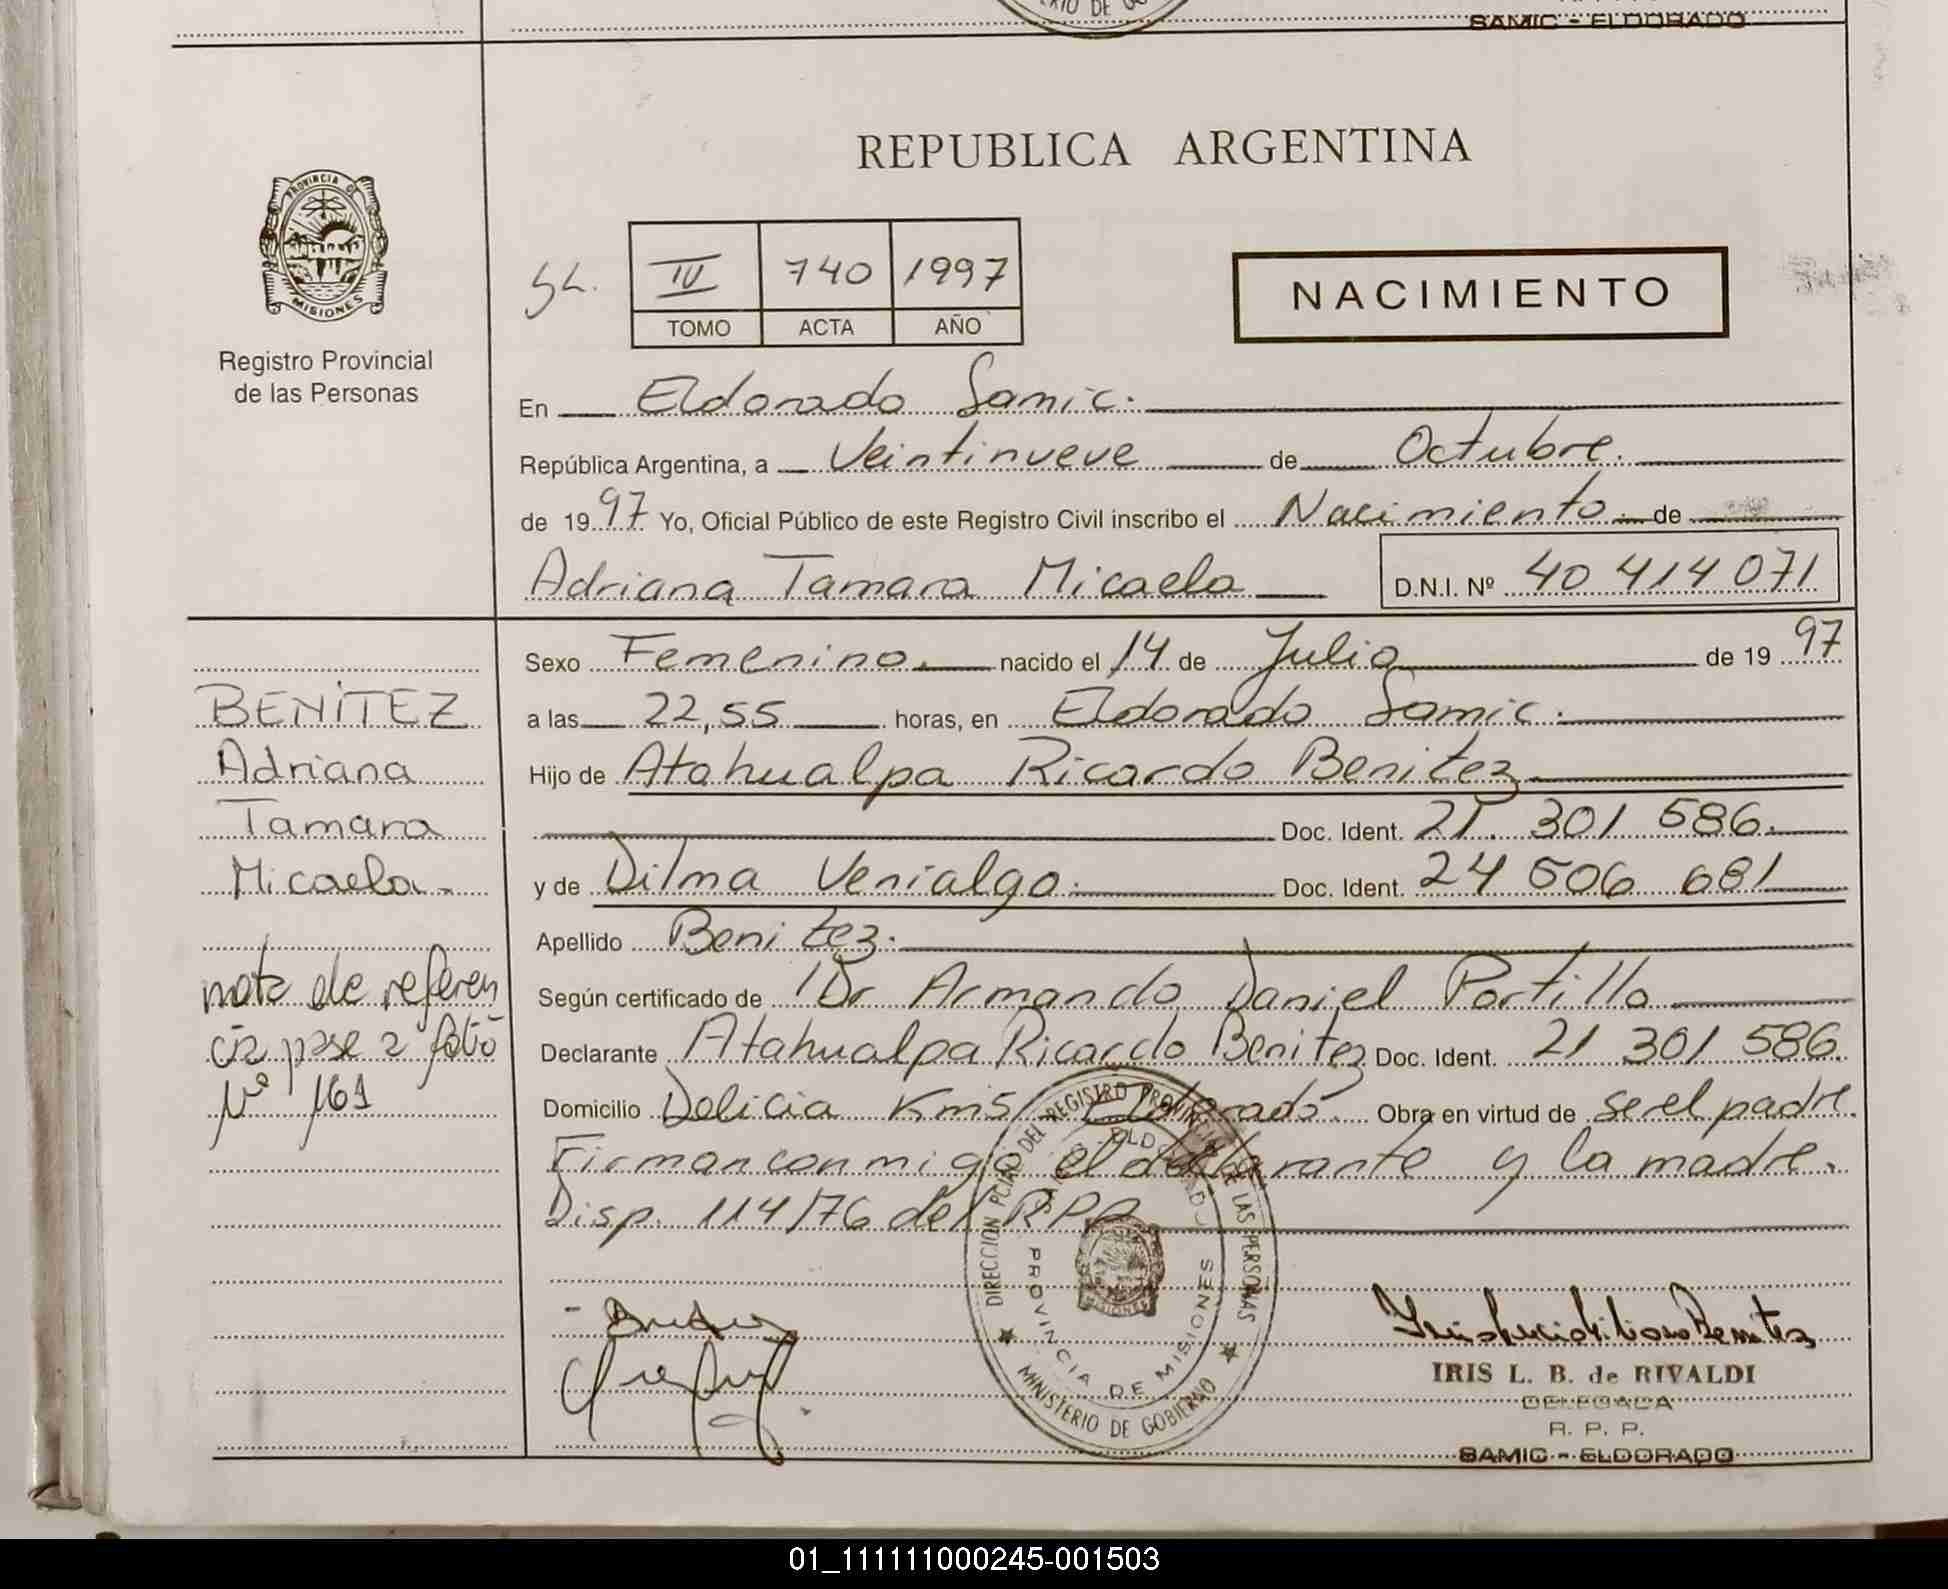 SAMIC - ELDORADO
REPUBLICA ARGENTINA
PROVINCIA DE
MISIONES
Registro Provincial
de las Personas
IV 740 1997
TOMO ACTA AÑO
NACIMIENTO
En Eldorado Samic.
República Argentina, a Veintinueve de Octubre.
de 1997 Yo, Oficial Público de este Registro Civil inscribo el Nacimiento de
Adriana Tamara Micaela D.N.I. Nº 40 414 071
Sexo Femenino nacido el 14 de Julio de 1997
a las 22,55 horas, en Eldorado Samic.
Hijo de Atahualpa Ricardo Benitez
Doc. Ident. 21. 301 586.
y de Dilma Venialgo. Doc. Ident. 24 506 681
Apellido Benitez.
Según certificado de Dr Armando Daniel Portillo
Declarante Atahualpa Ricardo Benitez Doc. Ident. 21 301 586.
Domicilio Delicia Km5 Eldorado. Obra en virtud de ser el padre.
Firman conmigo el declarante y la madre.
Disp. 114/76 del RPP
BENITEZ
Adriana
Tamara
Micaela.
nota de referen
cia pase a folio
Nº 161
DIRECCION PCIAL DEL REGISTRO PROVINCIAL DE LAS PERSONAS
MINISTERIO DE GOBIERNO
PROVINCIA DE MISIONES
MISIONES
IRIS L. B. de RIVALDI
DELEGADA
R. P. P.
SAMIC - ELDORADO
01_111111000245-001503